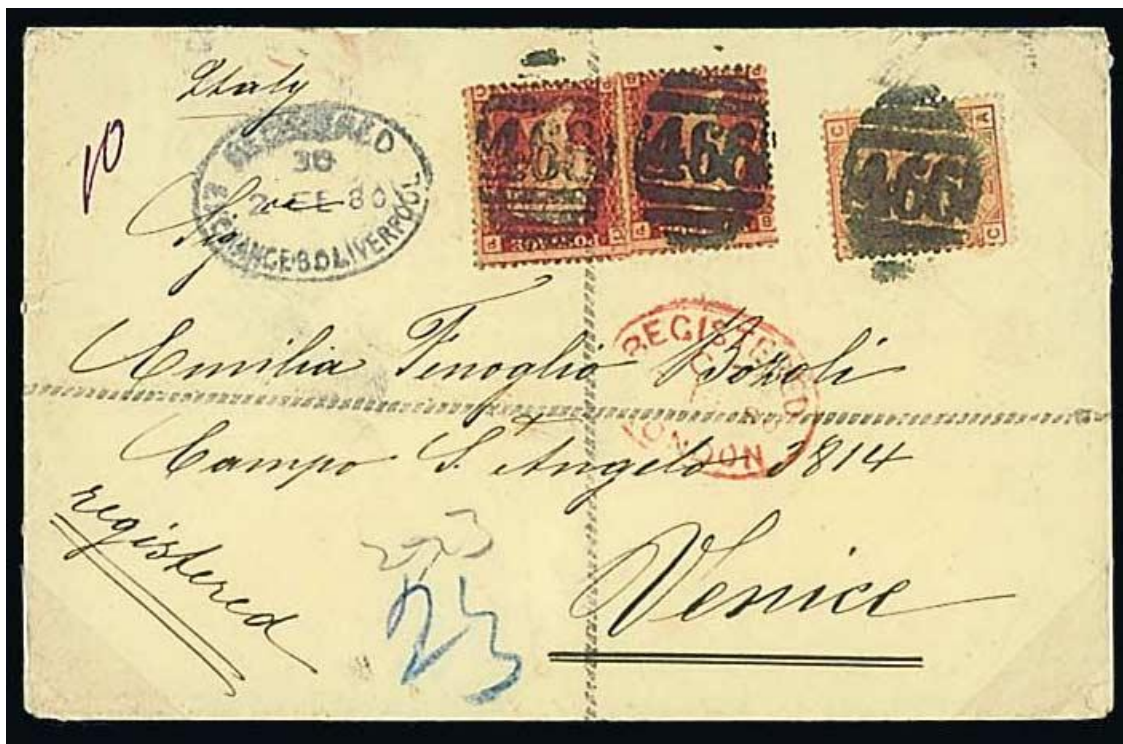 Italy
10
REGISTERED
2 FE 80
EXCHANGE B.O LIVERPOOL
466
466
466
REGISTERED
LONDON
Emilia Fenoglio Bozoli
Campo S. Angelo 3814
registered
23
Venice